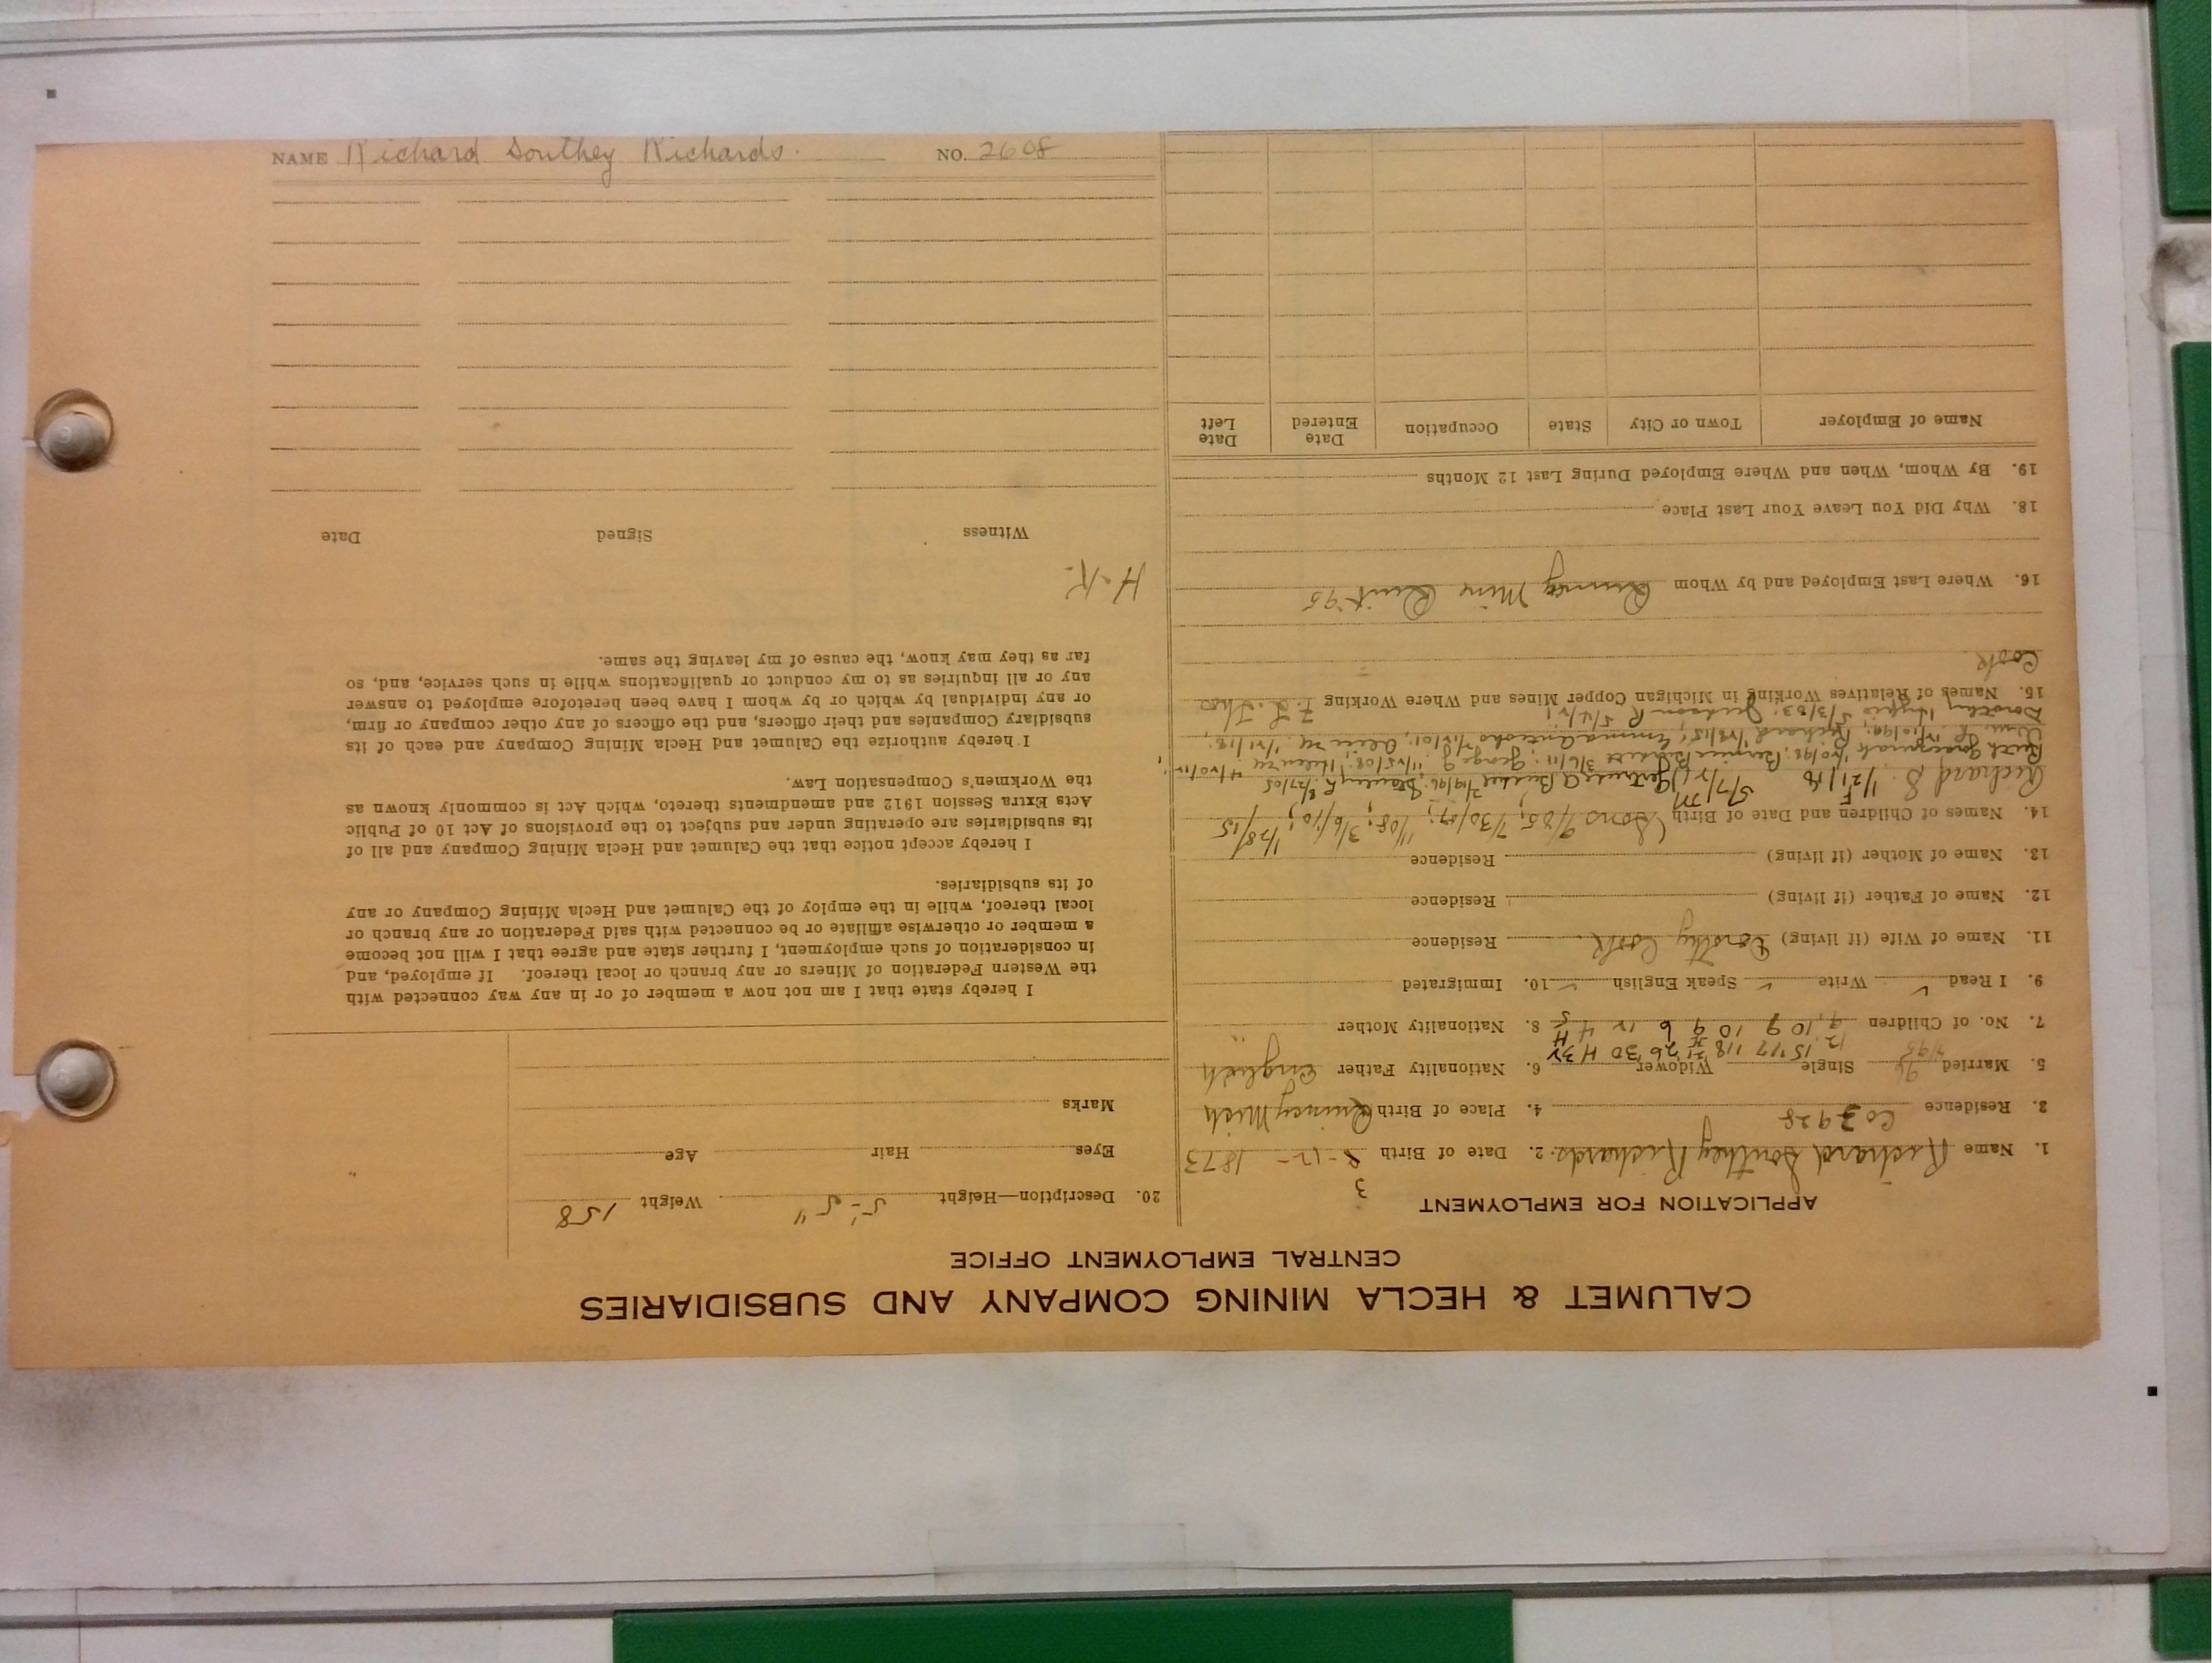 CALUMET & HECLA MINING COMPANY AND SUBSIDIARIES
CENTRAL EMPLOYMENT OFFICE
APPLICATION FOR EMPLOYMENT
1. Name Richard Southey Richards. 2. Date of Birth 12 - 1873
3
3. Residence Co 3928 4. Place of Birth Quincy Mich
5. Married 96 Single Widower 6. Nationality Father English
12 15 '17 '18 '21 '26 '30 H 34 H
7. No. of Children 9, 10 9 10 9 6 4 5 8. Nationality Mother "
9. I Read ✓ Write ✓ Speak English ✓ 10. Immigrated
11. Name of Wife (if living) Dorothy Cook Residence
12. Name of Father (if living) Residence
13. Name of Mother (if living) Residence
14. Names of Children and Date of Birth (Sons 9/05, 7/30/07; 11/08; 3/6/10; 1/28/15
Richard S. 1/21/16 5/7/ Gertrude A 2/19/96; Stanley R 8/27/05
Ruth 1/20/98; Bernice 3/6/11; George J 11/25/08; Helen 4/20/12
12/10/99; Richard 1/28/15; Emma 7/12/01; 1/21/18;
Dorothy 5/3/03; Judson R 5/4/21
15. Names of Relatives Working in Michigan Copper Mines and Where Working F.-L. Thos
Cook
16. Where Last Employed and by Whom Quincy Mine Quit '95
18. Why Did You Leave Your Last Place
19. By Whom, When and Where Employed During Last 12 Months
Name of Employer Town or City State Occupation Date Entered Date Left
20. Description—Height 5'-5" Weight 158
Eyes Hair Age
Marks
I hereby state that I am not now a member of or in any way connected with
the Western Federation of Miners or any branch or local thereof. If employed, and
in consideration of such employment, I further state and agree that I will not become
a member or otherwise affiliate or be connected with said Federation or any branch or
local thereof, while in the employ of the Calumet and Hecla Mining Company or any
of its subsidiaries.
I hereby accept notice that the Calumet and Hecla Mining Company and all of
its subsidiaries are operating under and subject to the provisions of Act 10 of Public
Acts Extra Session 1912 and amendments thereto, which Act is commonly known as
the Workmen's Compensation Law.
I hereby authorize the Calumet and Hecla Mining Company and each of its
subsidiary Companies and their officers, and the officers of any other company or firm,
or any individual by which or by whom I have been heretofore employed to answer
any or all inquiries as to my conduct or qualifications while in such service, and, so
far as they may know, the cause of my leaving the same.
H-K.
Witness Signed Date
NAME Richard Southey Richards. NO. 2608